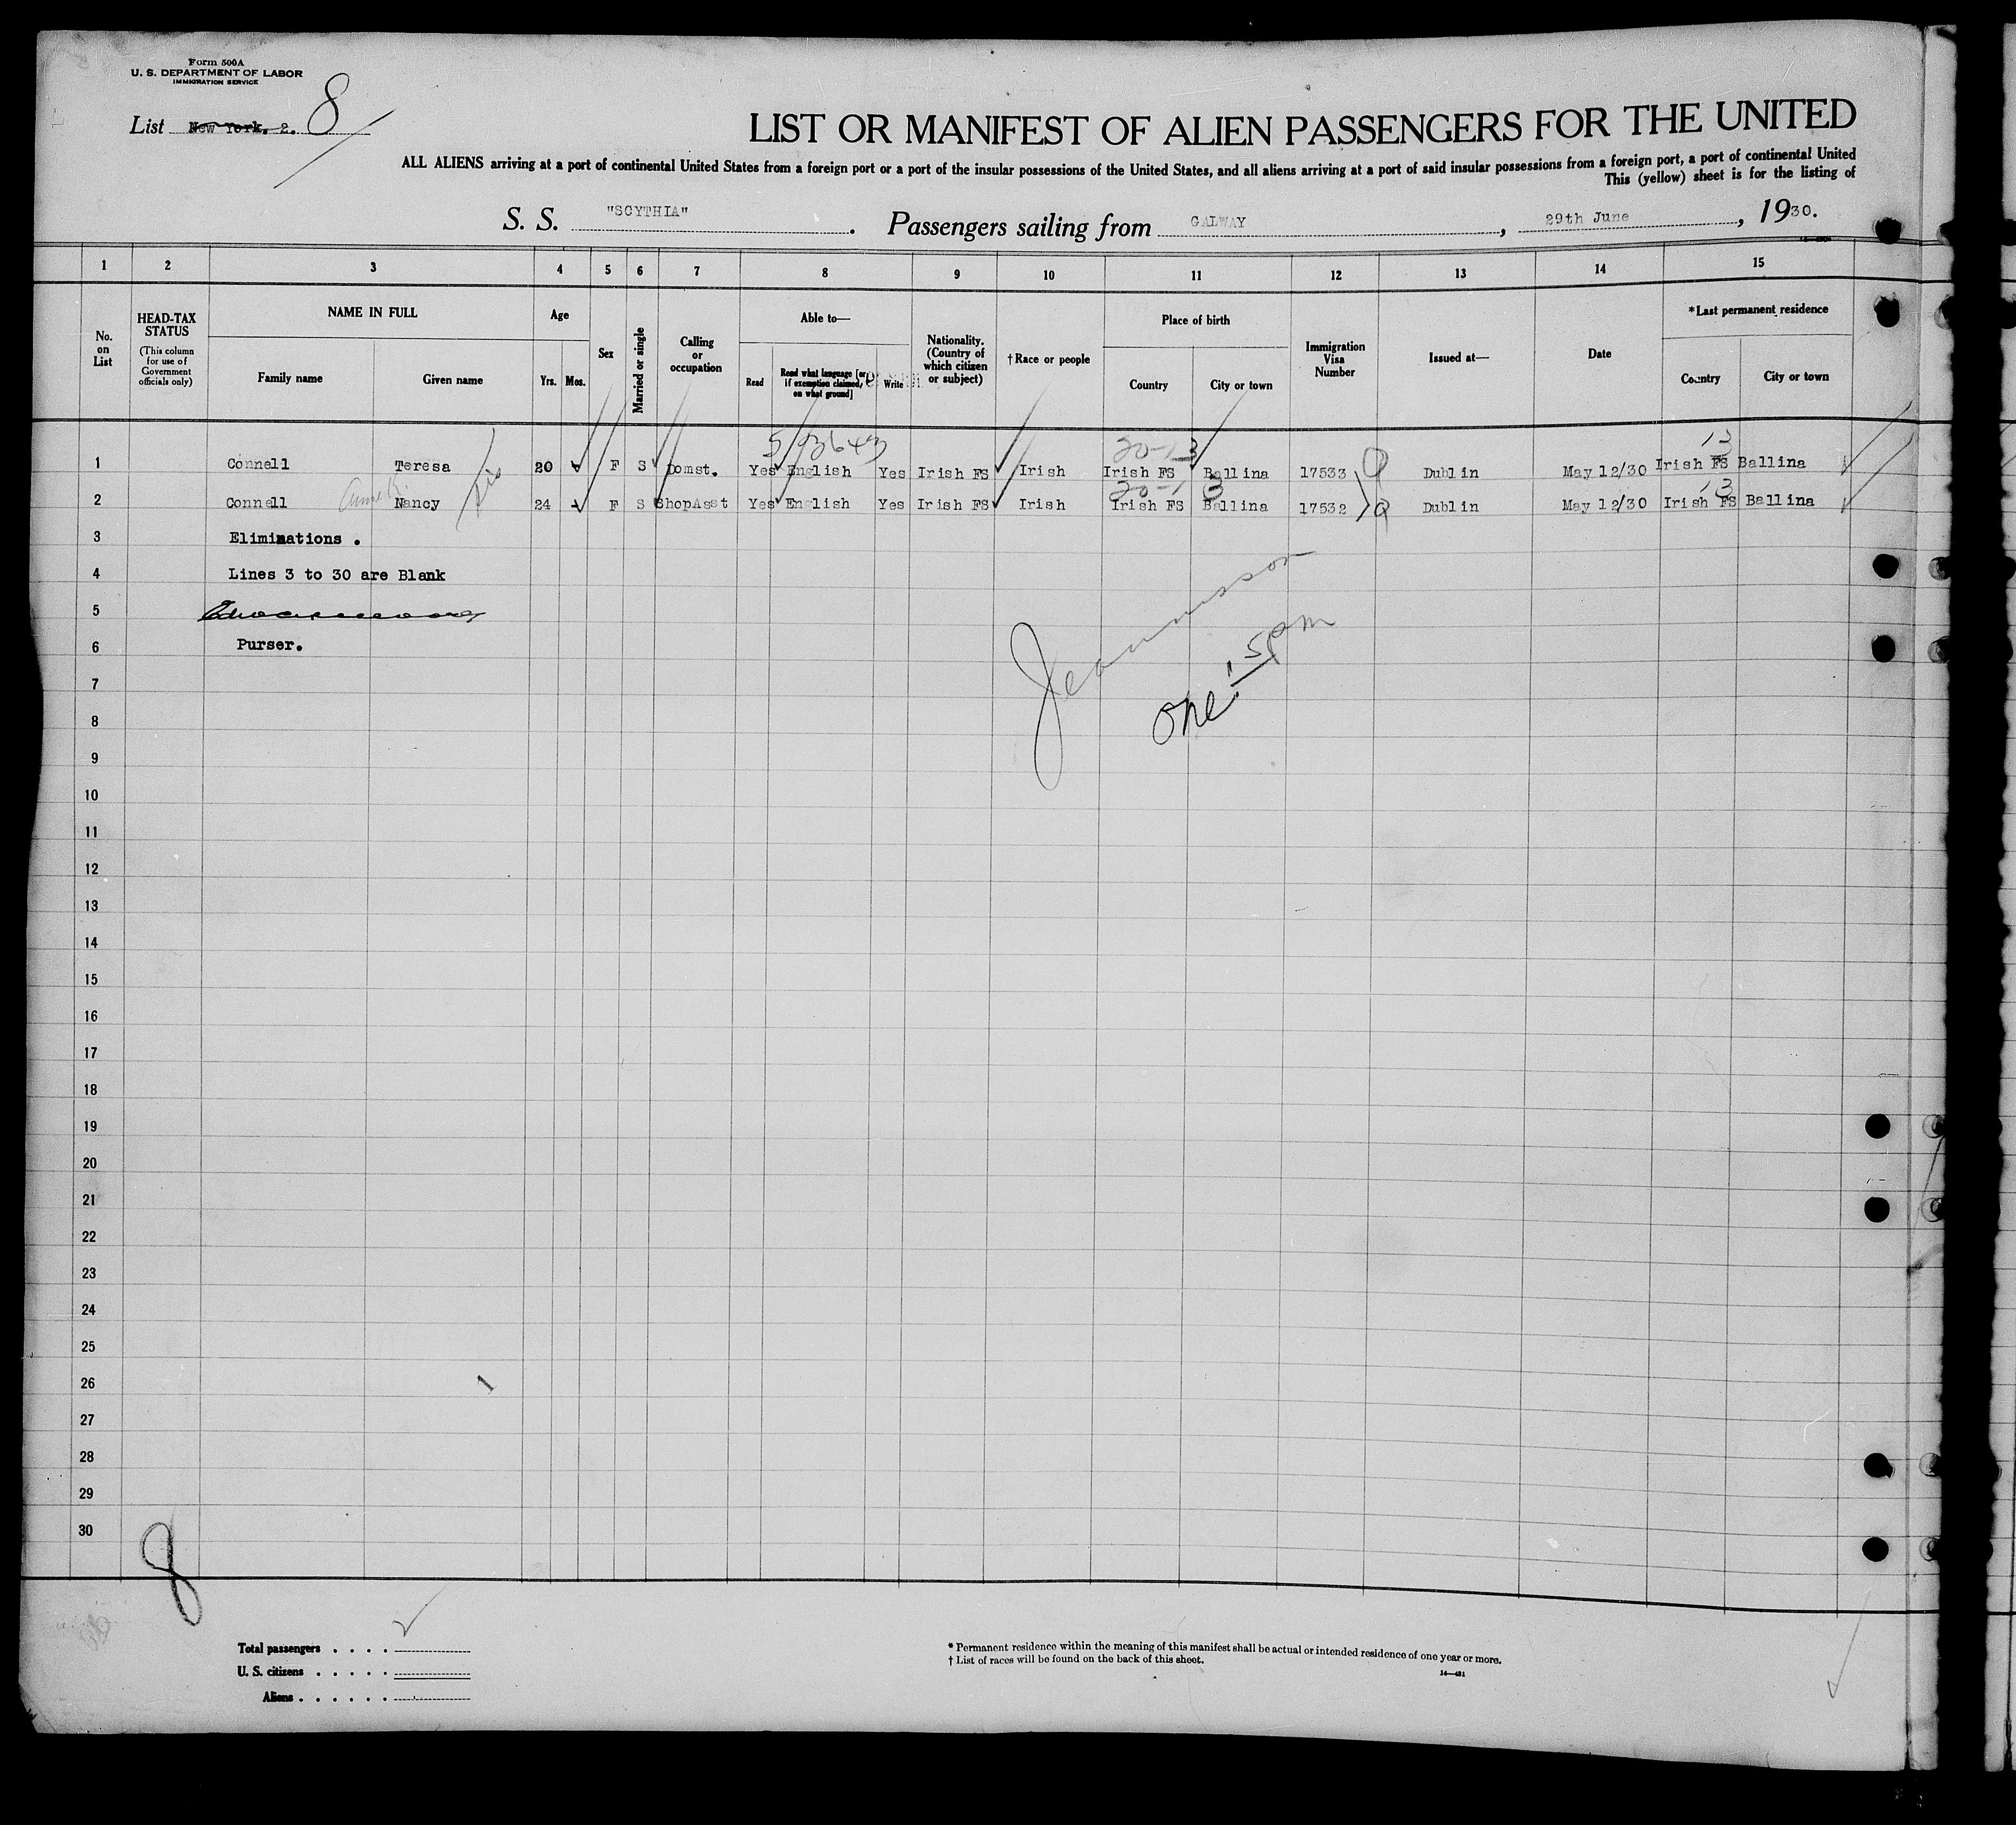 Form 500A
U. S. DEPARTMENT OF LABOR
IMMIGRATION SERVICE
List New York. 2. 8
LIST OR MANIFEST OF ALIEN PASSENGERS FOR THE UNITED
ALL ALIENS arriving at a port of continental United States from a foreign port or a port of the insular possessions of the United States, and all aliens arriving at a port of said insular possessions from a foreign port, a port of continental United
This (yellow) sheet is for the listing of
S. S. "SCYTHIA". Passengers sailing from GALWAY, 29th June, 1930.
1 2 3 4 5 6 7 8 9 10 11 12 13 14 15
No. on List
HEAD-TAX STATUS
(This column for use of Government officials only)
NAME IN FULL
Family name Given name
Age
Yrs. Mos.
Sex
Married or single
Calling or occupation
Able to—
Read
Read what language [or if exemption claimed, on what ground]
Write
Nationality. (Country of which citizen or subject)
†Race or people
Place of birth
Country City or town
Immigration Visa Number
Issued at—
Date
*Last permanent residence
Country City or town
20-13 13
1 Connell Teresa 20 F S Domst. Yes English Yes Irish FS Irish Irish FS Ballina 17533 Q Dublin May 12/30 Irish FS Ballina
20-13 13
2 Connell Nancy 24 F S ShopAsst Yes English Yes Irish FS Irish Irish FS Ballina 17532 Q Dublin May 12/30 Irish FS Ballina
3 Eliminations .
4 Lines 3 to 30 are Blank
5
6 Purser.
7
8
9
10
11
12
13
14
15
16
17
18
19
20
21
22
23
24
25
26
27
28
29
30
8
Total passengers . . . .
U. S. citizens . . . . .
Aliens . . . . . .
* Permanent residence within the meaning of this manifest shall be actual or intended residence of one year or more.
† List of races will be found on the back of this sheet.